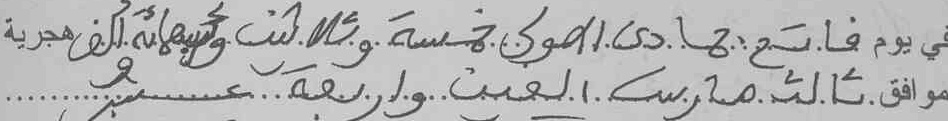 في يوم فاتح جمادى الاولى خمسة وثلاثين وأربعمائة ألف هجرية
موافق ثالث مارس الفين واربعة عشر